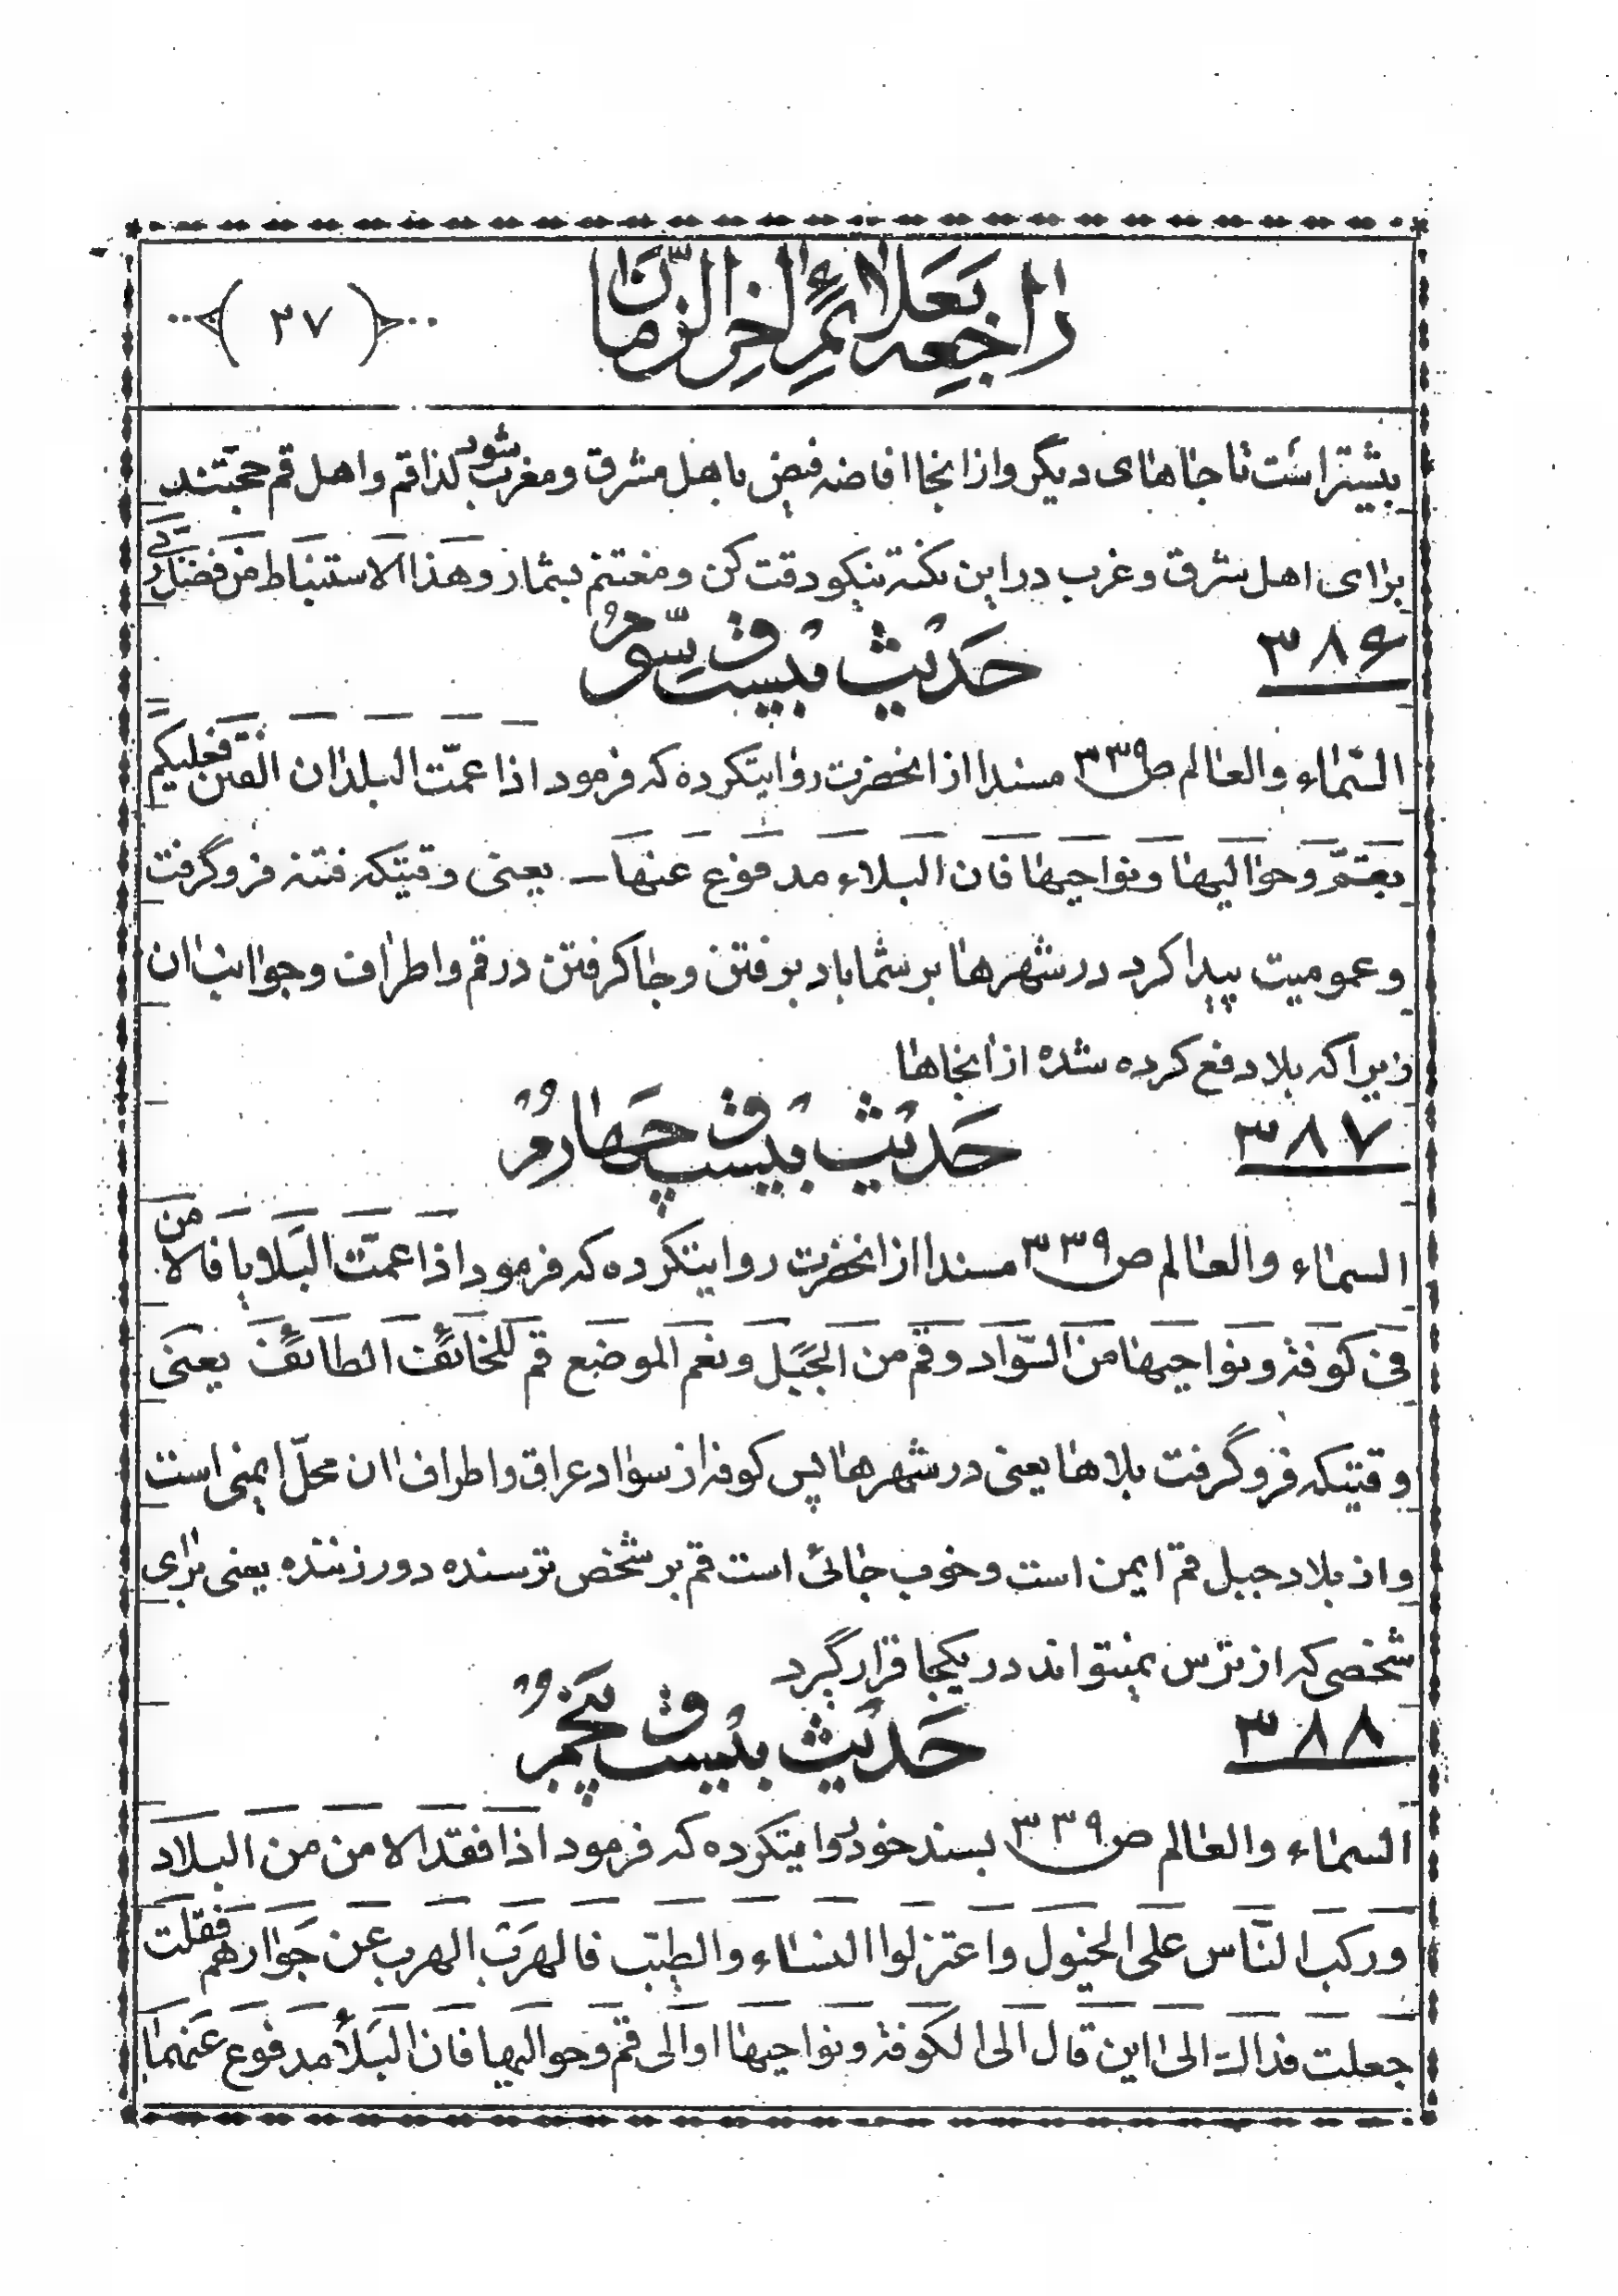 راجعه بعلائم اخر الزمان
﴿ ٣٧ ﴾
بیشتر است تا جاهای دیگر و از انجا افاضه فیض باهل مشرق و مغرب شود لذا قم و اهل قم حجتند
برای اهل شرق و غرب در این نکته نیکو دقت کن و مغتنم بشمار و هذا الاستنباط من فضل ربی
٣٨۶
حدیث بیست و سوم
السّماء و العالم ص ٣٣٩ مسندا از انحضرت روایتکرده که فرمود اذا عمّت البلدان الفتن فعلیکم
بقمّ و حوالیها و نواحیها فان البلاء مدفوع عنها ـ یعنی وقتیکه فتنه فرو گرفت
و عمومیت پیدا کرد در شهرها بر شما باد برفتن و جا گرفتن در قم و اطراف و جوانب ان
زیرا که بلا دفع کرده شده از انجاها
٣٨٧
حدیث بیست و چهارم
السماء و العالم ص ٣٣٩ مسندا از انحضرت روایتکرده که فرمود اذا عمّت البلایا فالامن
فی کوفة و نواحیها من السّواد و قم من الجبل و نعم الموضع قم للخائف الطائف یعنی
وقتیکه فرو گرفت بلاها یعنی در شهرها پس کوفه از سواد عراق و اطراف ان محلّ ایمنی است
و از بلاد جبل قم ایمن است و خوب جائی است قم بر شخص ترسنده دور زننده یعنی برای
شخصی که از ترس نمیتواند در یکجا قرار گیرد
٣٨٨
حدیث بیست و پنجم
السماء و العالم ص ٣٣٩ بسند خود روایتکرده که فرمود اذا فقد الامن من البلاد
و رکب النّاس علی الخیول و اعتزلوا النساء و الطیب فالهرب الهرب عن جوارهم فقلت
جعلت فداک الی این قال الی الکوفة و نواحیها او الی قم و حوالیها فان البلاء مدفوع عنهما